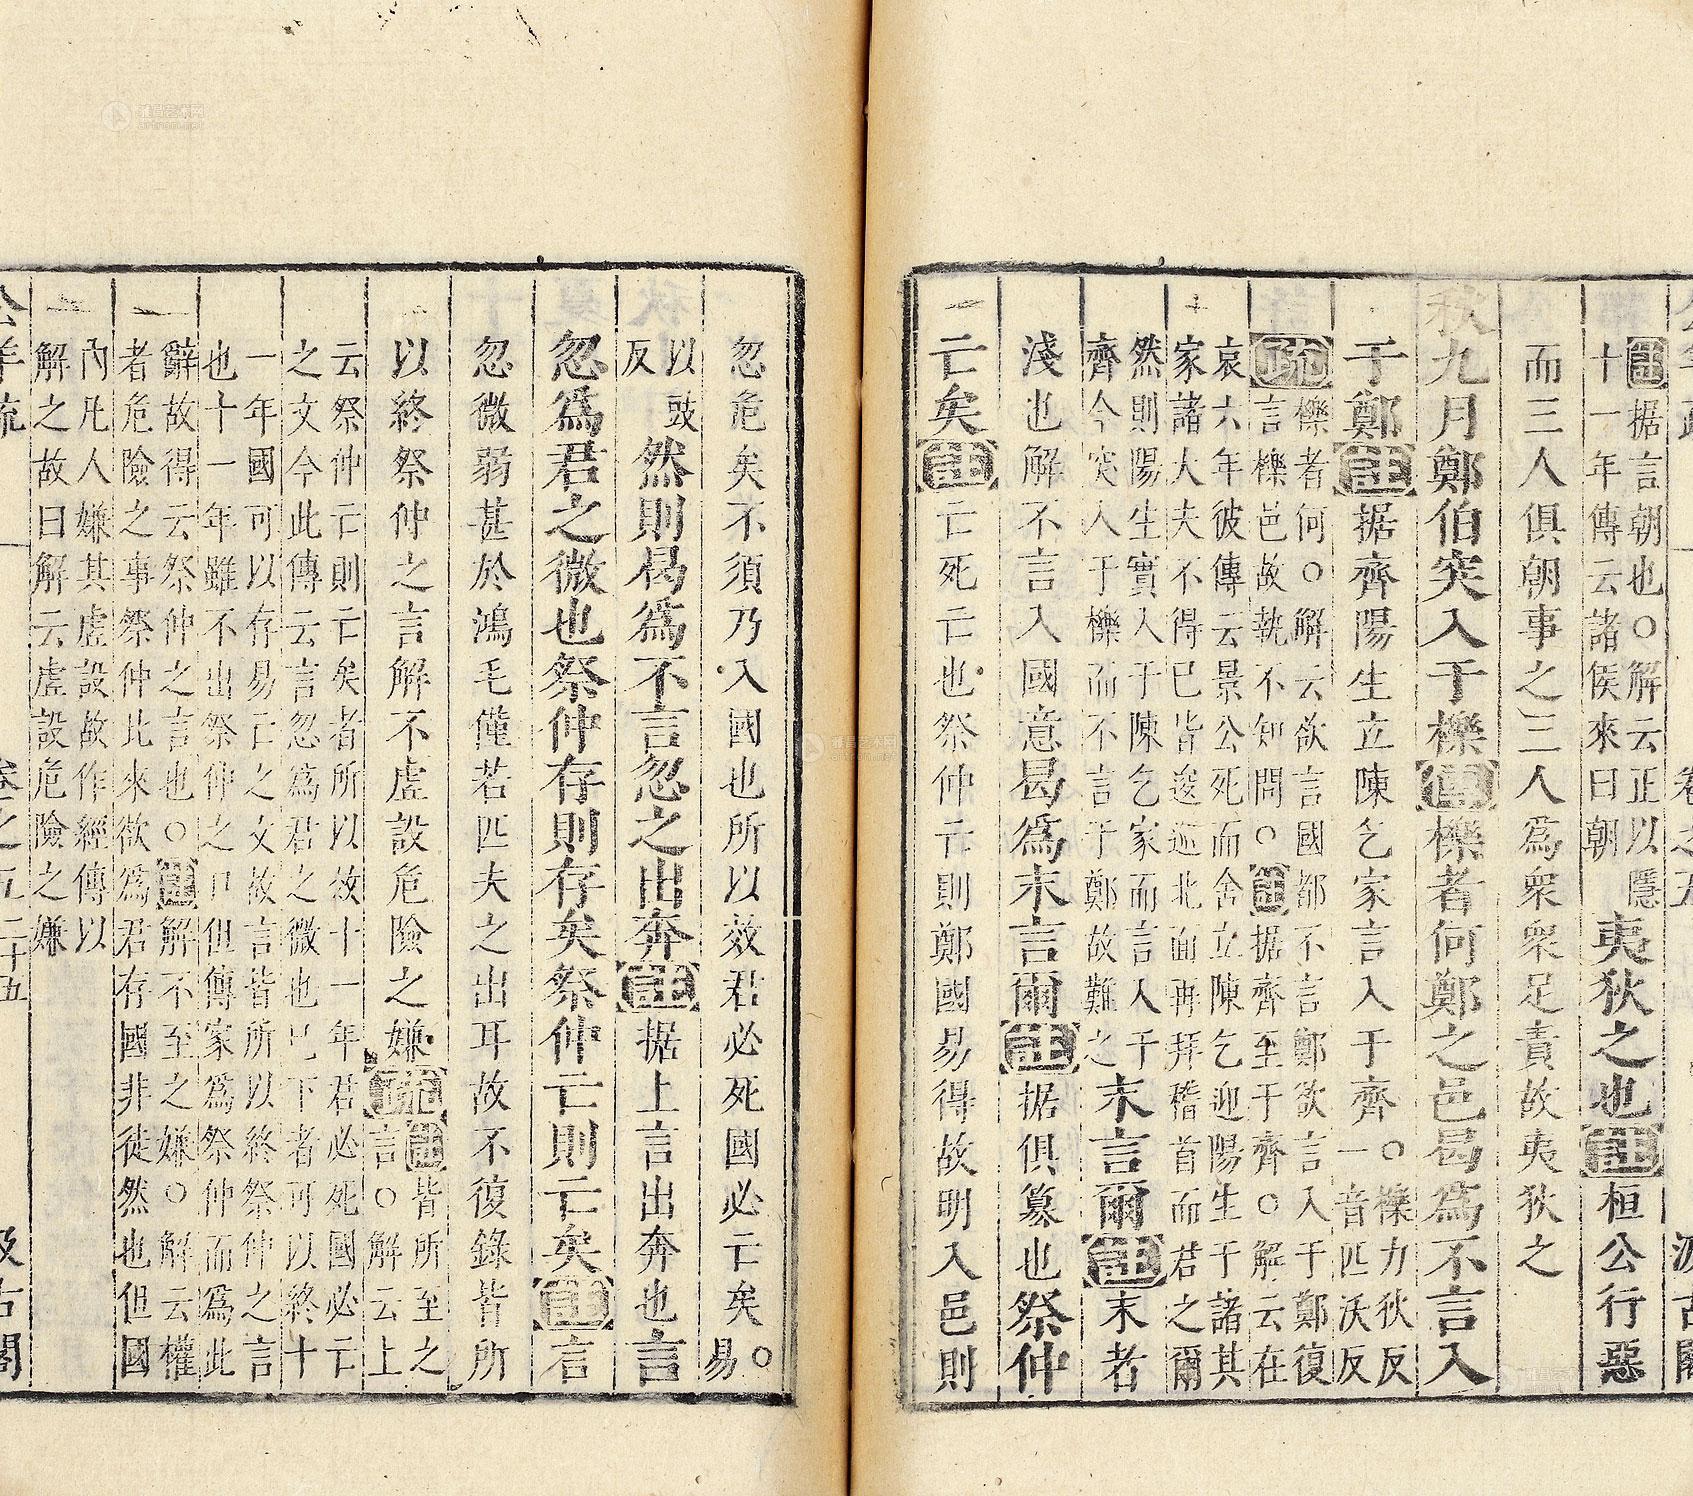 註据言朝也○解云正以隱
十一年傳云諸侯來曰朝
夷狄之也註桓公行惡
而三人俱朝事之三人爲衆衆足責故夷狄之
秋九月鄭伯突入于櫟傳櫟者何鄭之邑曷爲不言入
于鄭註据齊陽生立陳乞家言入于齊○櫟力狄反
一音匹沃反
疏櫟者何○解云欲言國都不言鄭欲言入于鄭復
言櫟邑故執不知問○註据齊至于齊○解云在
哀六年彼傳云景公死而舍立陳乞迎陽生于諸其
家諸大夫不得已皆逡巡北面再拜稽首而君之爾
然則陽生實入于陳乞家而言入于
齊今突入于櫟而不言于鄭故難之
末言爾註末者
淺也解不言入國意曷爲末言爾註据俱篡也祭仲
亡矣註亡死亡也祭仲亡則鄭國易得故明入邑則
忽危矣不須乃入國也所以效君必死國必亡矣○易
以豉
反
然則曷爲不言忽之出奔註据上言出奔也言
忽爲君之微也祭仲存則存矣祭仲亡則亡矣註言
忽微弱甚於鴻毛僅若匹夫之出耳故不復錄皆所
以終祭仲之言解不虛設危險之嫌疏註皆所至之
言○解云上
云祭仲亡則亡矣者所以故十一年君必死國必亡
之文今此傳云言忽爲君之微也已下者可以終十
一年國可以存易亡之文故言皆所以終祭仲之言
也十一年雖不出祭仲之口但傳家爲祭仲而爲此
辭故得云祭仲之言也○註解不至之嫌○解云權
者危險之事祭仲比來欲爲君存國非徒然也但國
內凡人嫌其虛設故作經傳以
解之故曰解云虛設危險之嫌
公羊疏 卷之五 二十五 汲古閣